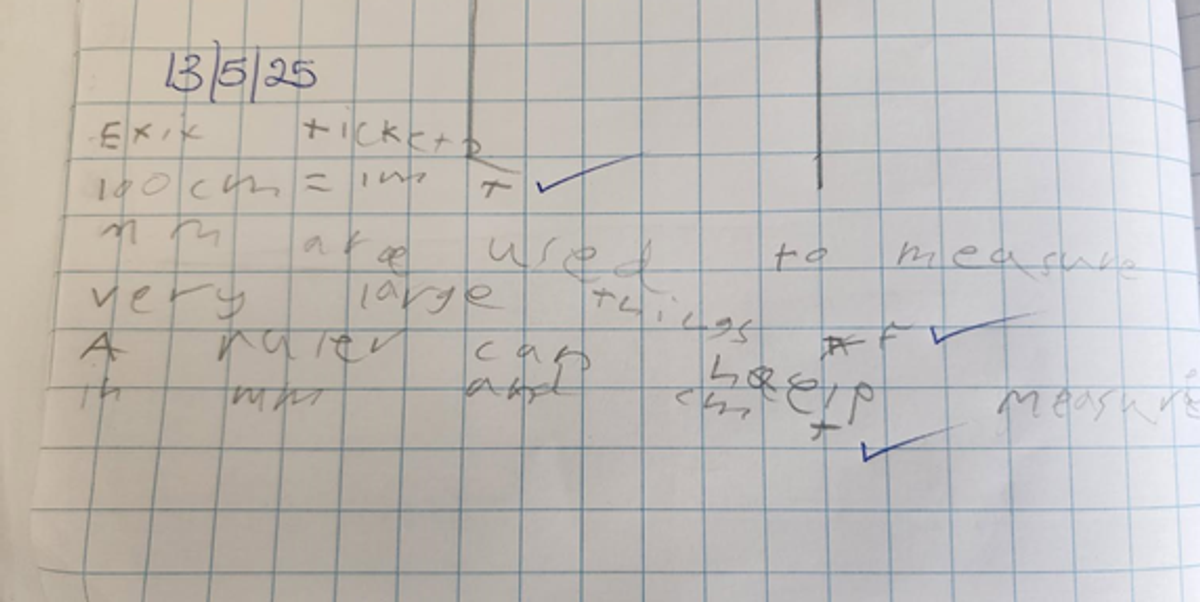 13/5/25
Exik tickct 2
100 cm = 1m T
mm are used to measure
very large things F
A ruler can heelp measure
in mm and cm T